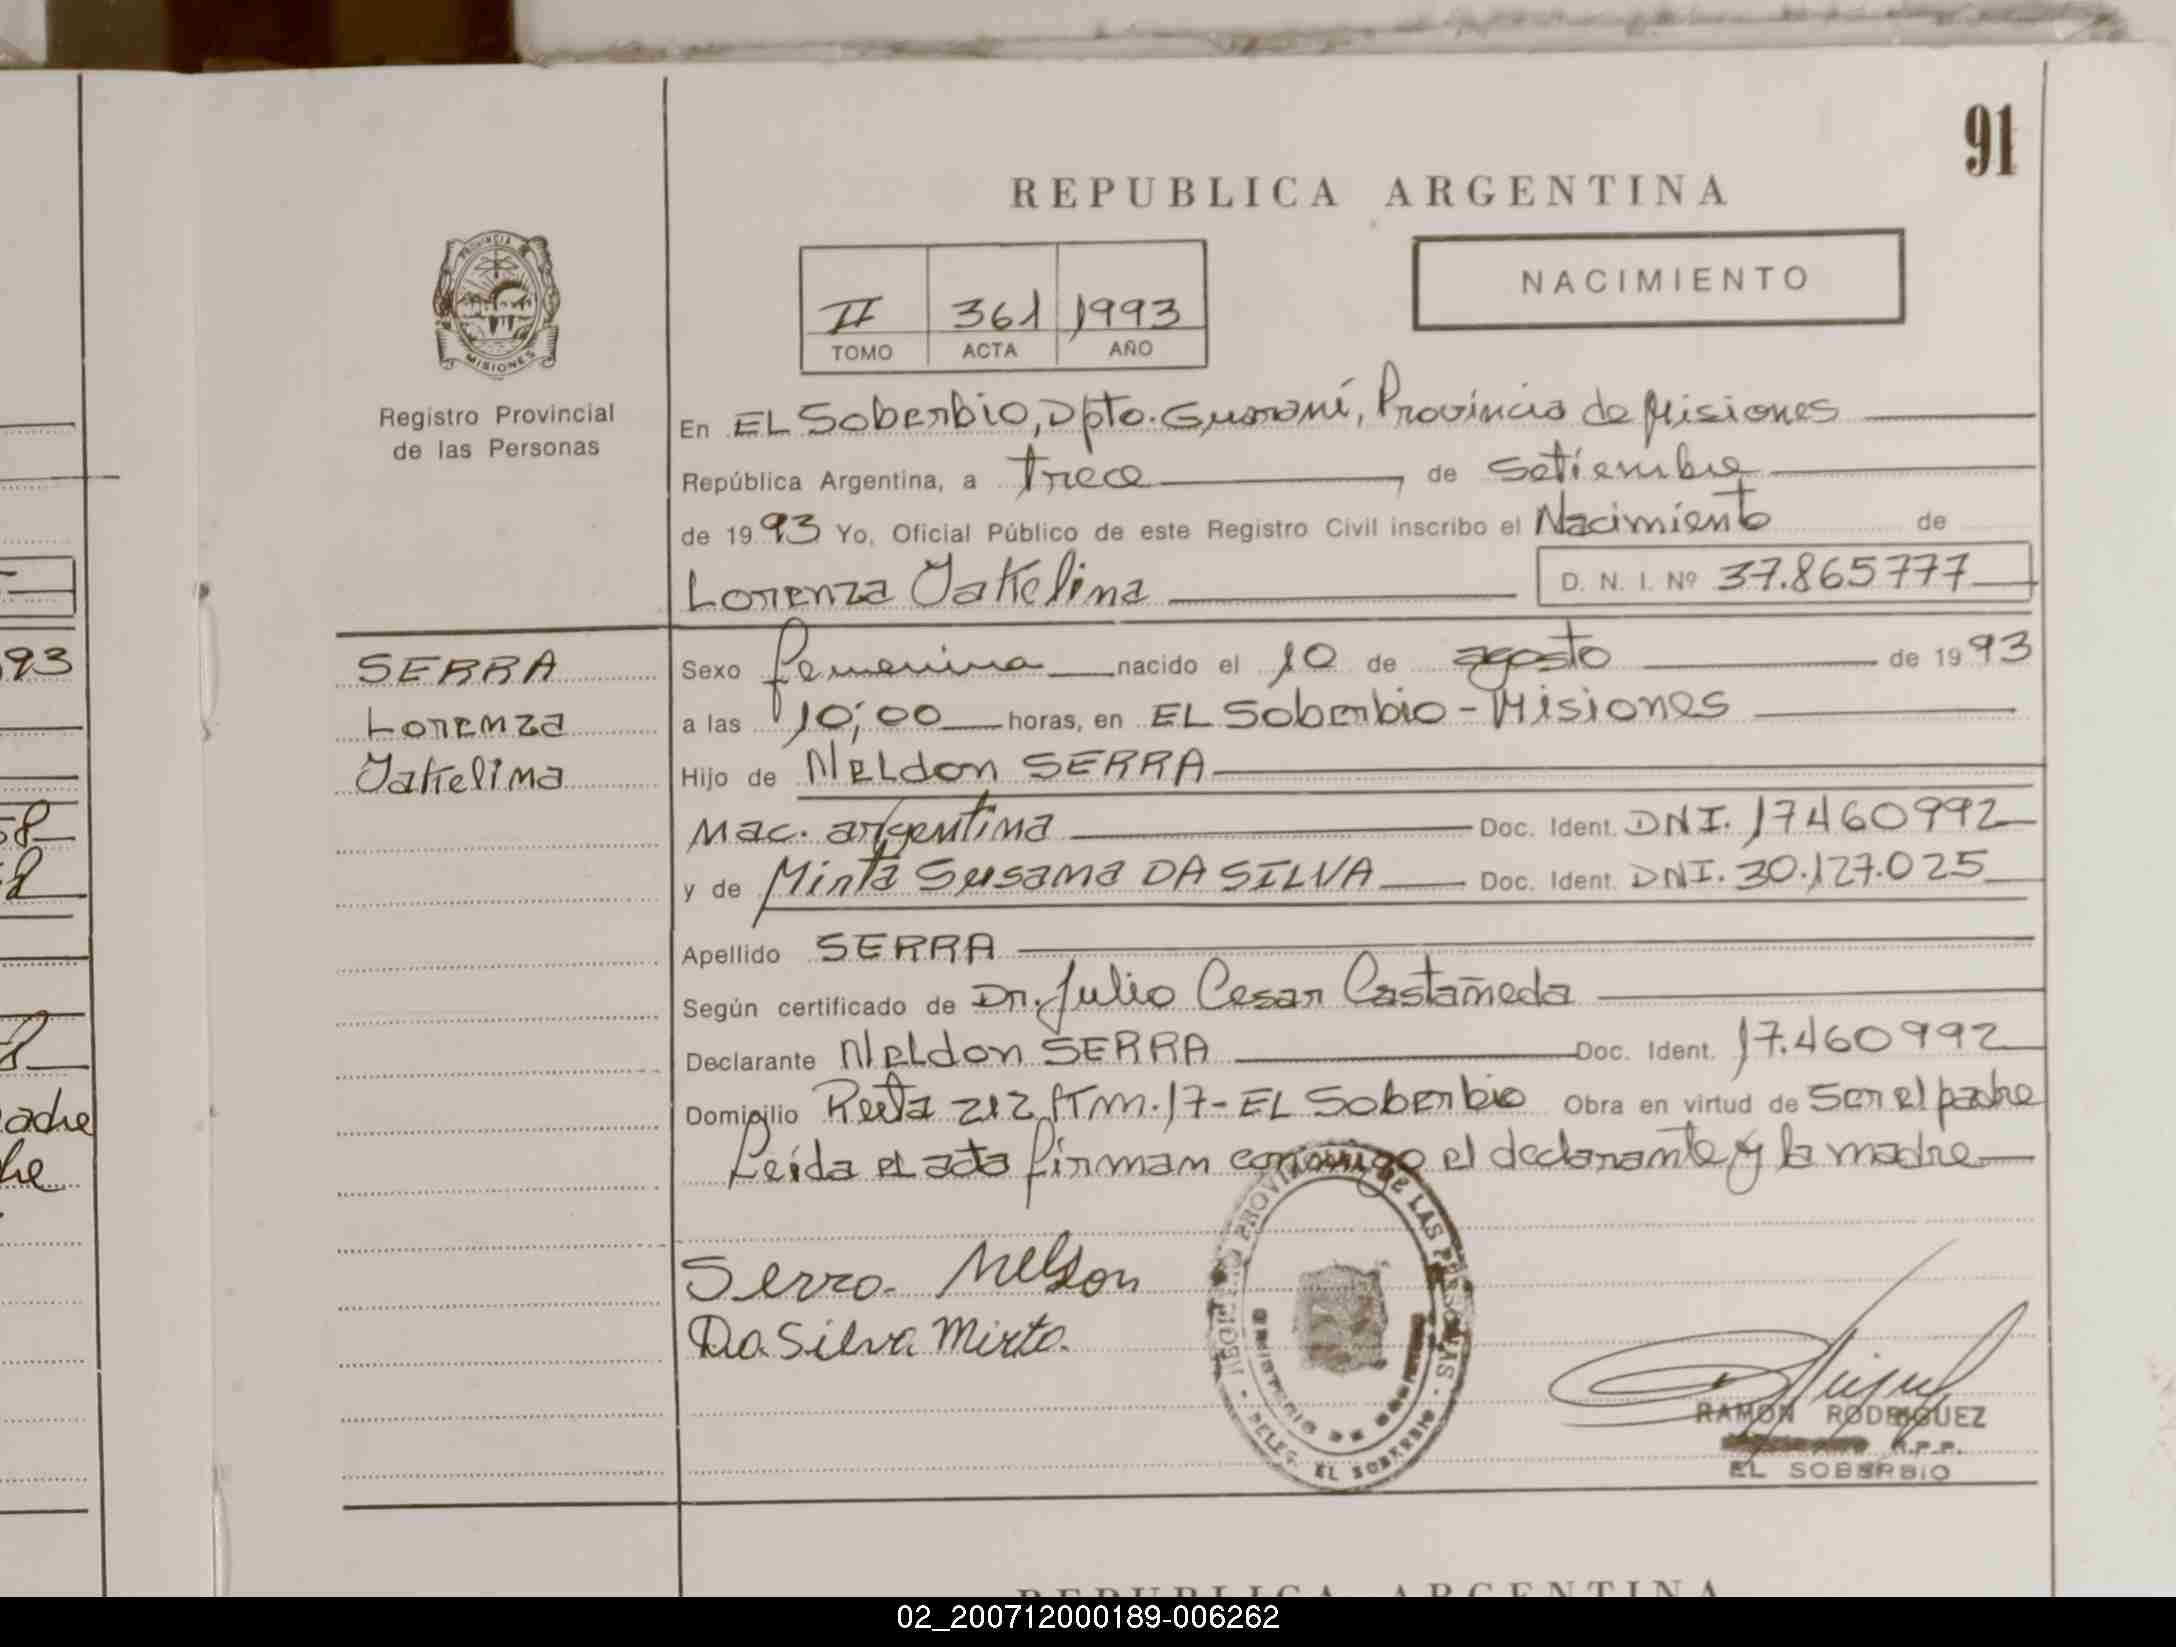 91
REPUBLICA ARGENTINA
NACIMIENTO
II 361 1993
TOMO ACTA AÑO
PROVINCIA DE MISIONES
Registro Provincial
de las Personas
En EL Soberbio, Dpto. Guaraní, Provincia de Misiones
República Argentina, a trece de Setiembre
de 1993 Yo, Oficial Público de este Registro Civil inscribo el Nacimiento de
Lorenza Yakelina D. N. I. Nº 37.865777
SERRA
Lorenza
Yakelina
Sexo femenina nacido el 10 de agosto de 1993
a las 10;00 horas, en EL Soberbio - Misiones
Hijo de Neldon SERRA
Nac. argentina Doc. Ident. DNI. 17460992
y de Mirta Susana DA SILVA Doc. Ident. DNI. 30.127.025
Apellido SERRA
Según certificado de Dr. Julio Cesar Castañeda
Declarante Neldon SERRA Doc. Ident. 17.460992
Domicilio Ruta 212 Km. 17 - EL Soberbio Obra en virtud de Ser el padre
Leída el acta firman conmigo el declarante y la madre
Serra. Nelson
Da Silva Mirta.
REGISTRO PROVINCIAL DE LAS PERSONAS - DELEG. EL SOBERBIO
MINISTERIO DE GOBIERNO
RAMON RODRIGUEZ
R.P.P.
EL SOBERBIO
REPUBLICA ARGENTINA
93
58
adre
he
02_200712000189-006262